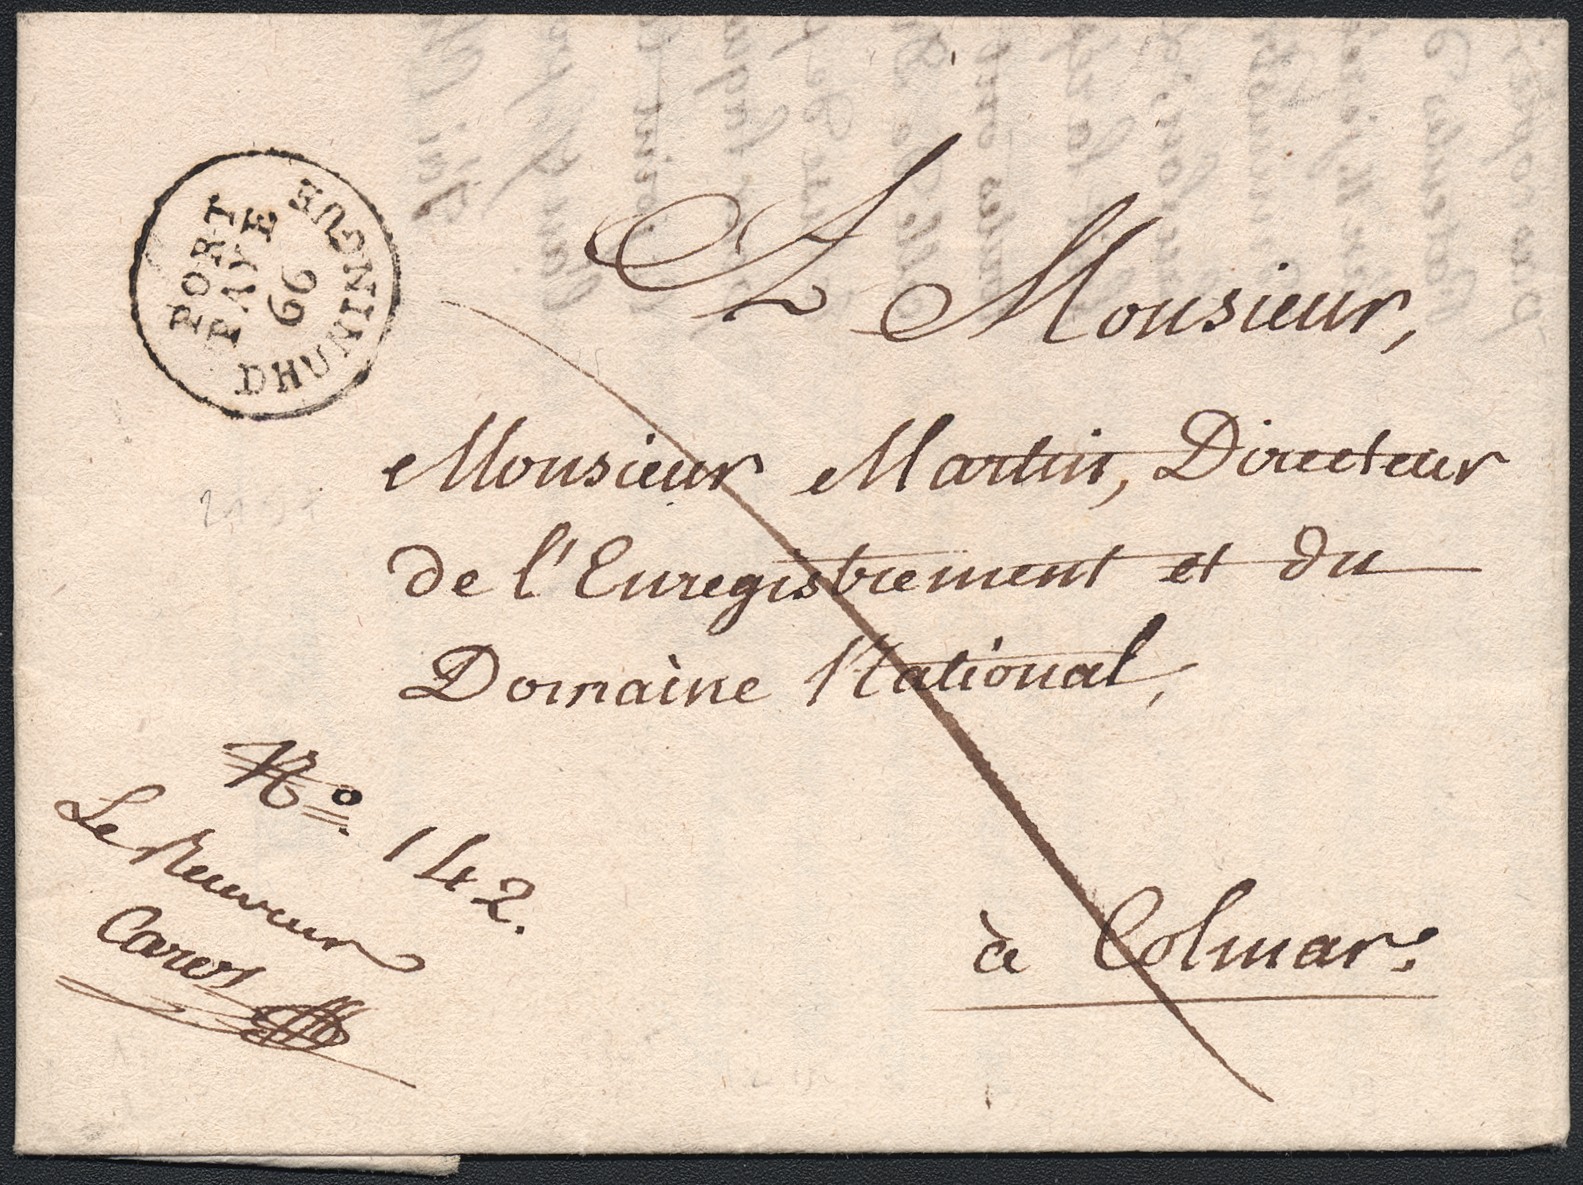 PORT
PAYÉ
66
DHUNINGUE
A Monsieur,
Monsieur Martin, Directeur
de l'Enregistrement et du
Domaine National,
N.o 142.
Le Receveur
à Colmar.